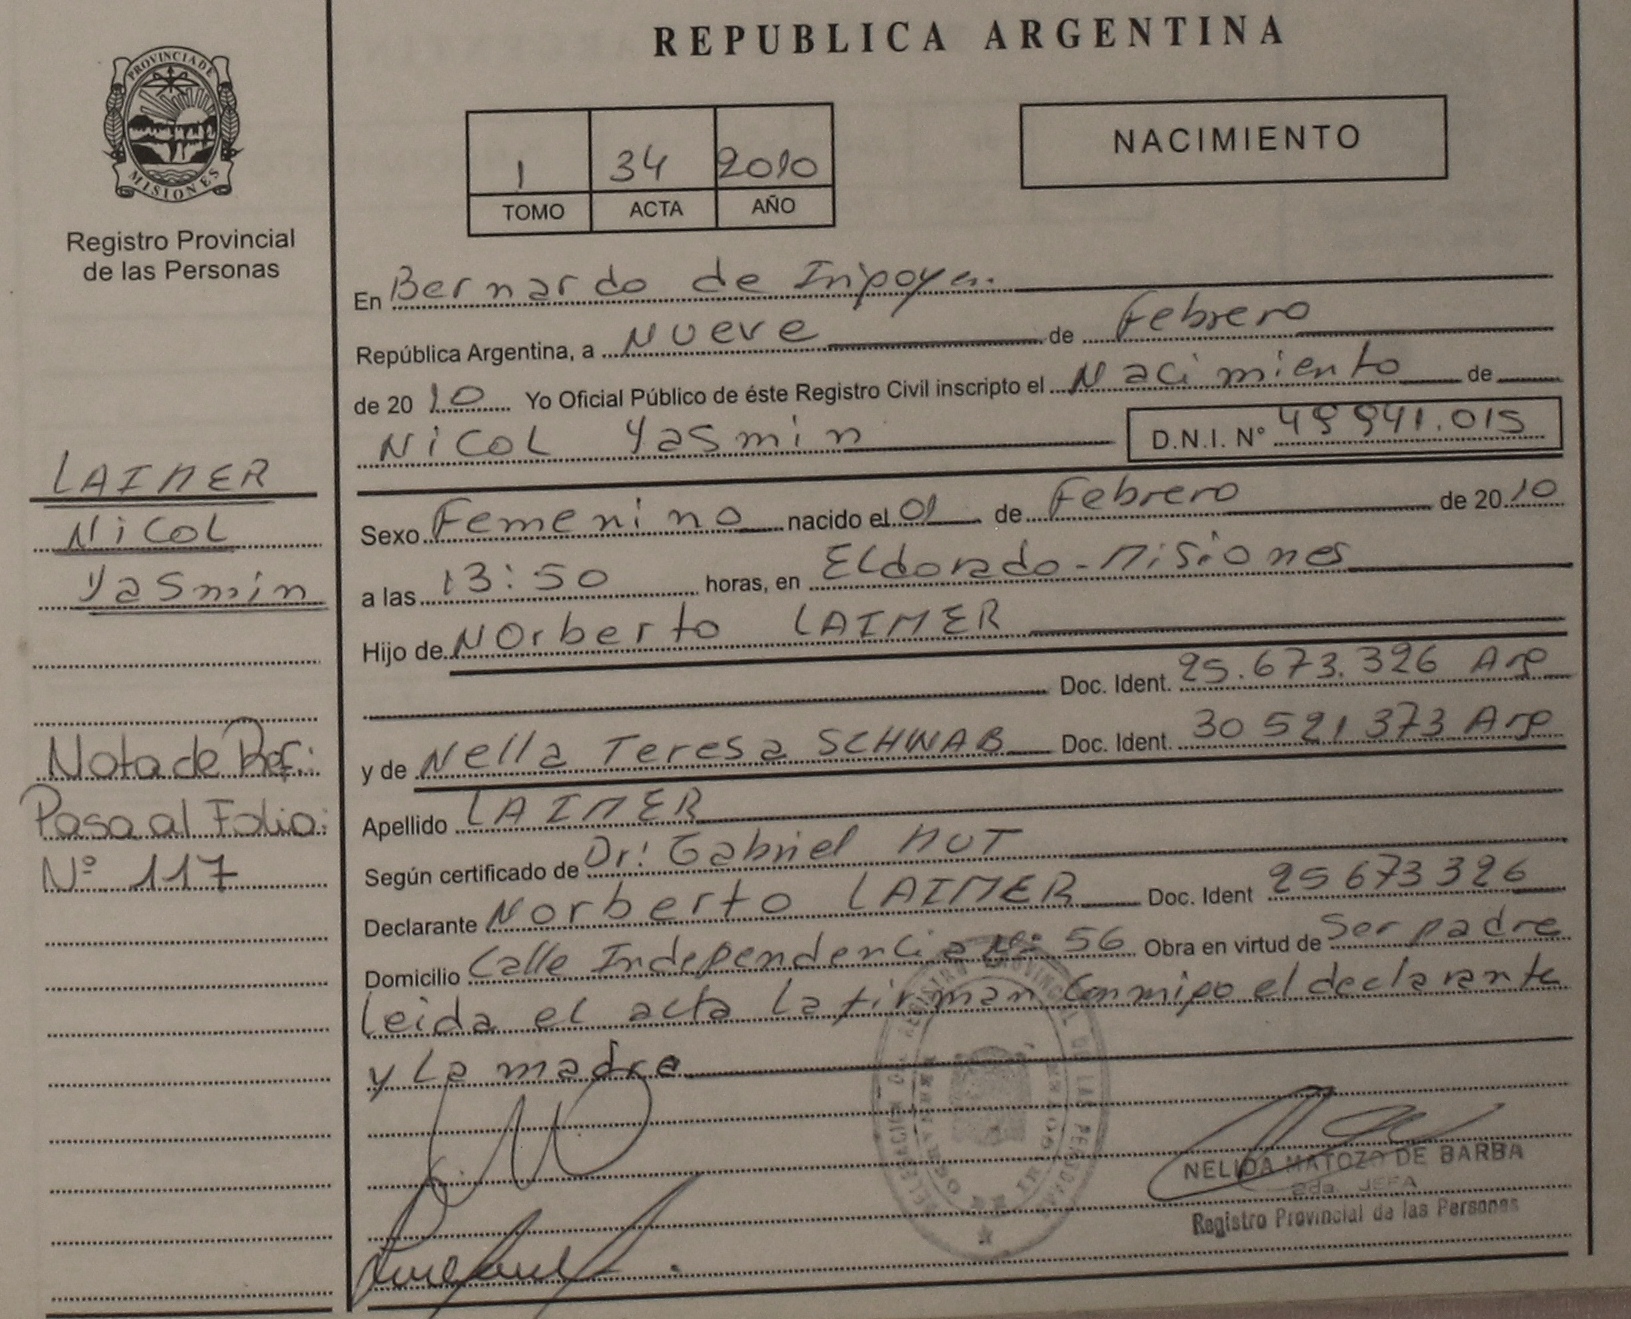 REPUBLICA ARGENTINA
PROVINCIA DE
MISIONES
Registro Provincial
de las Personas
1 34 2010
TOMO ACTA AÑO
NACIMIENTO
En Bernardo de Iripoyen.
República Argentina, a Nueve de Febrero
de 2010 Yo Oficial Público de éste Registro Civil inscripto el Nacimiento de
Nicol Yasmin D.N.I. Nº
LAIMER
Nicol
Yasmin
Sexo Femenino nacido el 01 de Febrero de 2010
a las 13:50 horas, en Eldorado - Misiones
Hijo de Norberto LAIMER
Doc. Ident. 25.673.326 Arg
y de Nella Teresa SCHWAB Doc. Ident. 30 521 373 Arg
Apellido LAIMER
Según certificado de Dr: Gabriel
Declarante Norberto LAIMER Doc. Ident 25 673 326
Domicilio Calle Independencia Nº 56 Obra en virtud de Ser padre
Leida el acta la firman conmigo el declarante
y la madre
Nota de Ref.:
Pasa al Folio:
Nº 117
NELIDA MATOZO DE BARBA
2da. JEFA
Registro Provincial de las Personas